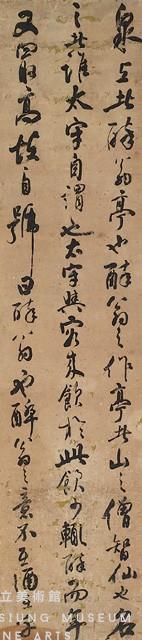 泉上者醉翁亭也醉翁之作亭者山之僧智仙也名
之者誰太守自謂也太守與客來飲於此飲少輒醉而年
又最高故自號曰醉翁也醉翁之意不在酒
立美術館
SIUNG MUSEUM
NE ARTS